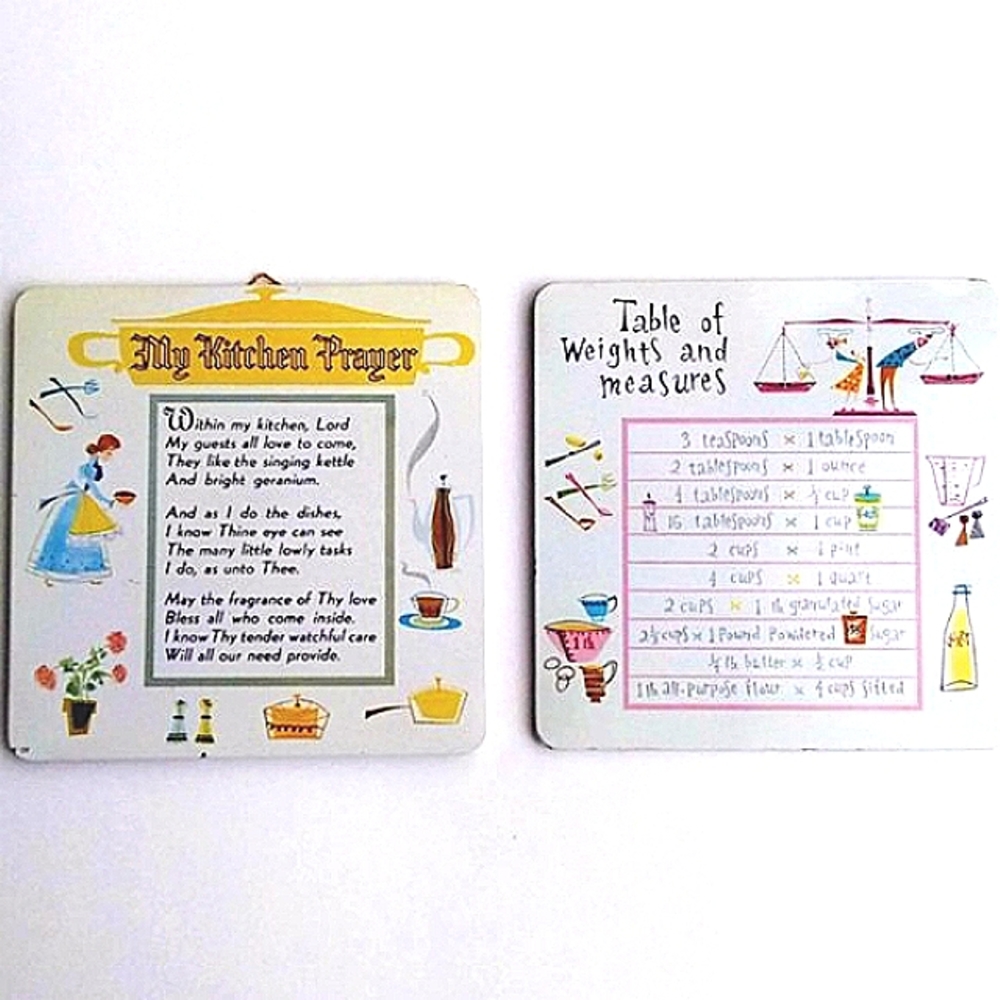 My Kitchen Prayer
Within my kitchen, Lord
My guests all love to come,
They like the singing kettle
And bright geranium.
And as I do the dishes,
I know Thine eye can see
The many little lowly tasks
I do, as unto Thee.
May the fragrance of Thy love
Bless all who come inside.
I know Thy tender watchful care
Will all our need provide.
Table of
Weights and
measures
3 teaspoons × 1 tablespoon
2 tablespoons × 1 ounce
4 tablespoons × ¼ cup
16 tablespoons × 1 cup
2 cups × 1 pint
4 cups × 1 quart
2 cups × 1 lb granulated sugar
2½ cups × 1 Pound Powdered Sugar
¼ lb butter × ½ cup
1 lb all-purpose flour × 4 cups sifted
1 lb